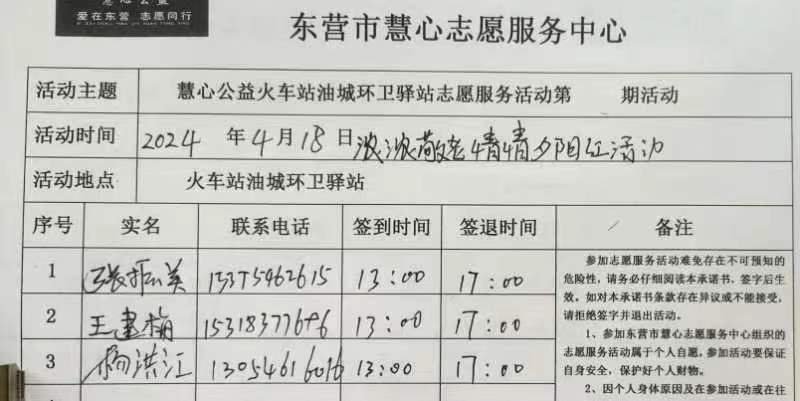 慧心公益
爱在东营 志愿同行
东营市慧心志愿服务中心
活动主题 慧心公益火车站油城环卫驿站志愿服务活动第 期活动
活动时间 2024 年 4 月 18 日 浓浓敬老情情夕阳红活动
活动地点 火车站油城环卫驿站
序号 实名 联系电话 签到时间 签退时间 备注
1 张振美 15375462615 13:00 17:00
2 王建梅 15318377696 13:00 17:00
3 杨洪江 13054616016 13:00 17:00
参加志愿服务活动难免存在不可预知的
危险性,请务必仔细阅读本承诺书,签字后生
效。如对本承诺书条款存在异议或不能接受,
请拒绝签字并退出活动。
1、参加东营市慧心志愿服务中心组织的
志愿服务活动属于个人自愿,参加活动要保证
自身安全,保护好个人财物。
2、因个人身体原因及在参加活动或在往